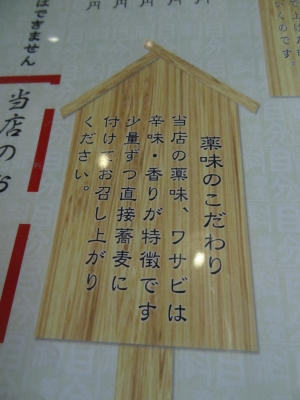 薬味のこだわり
当店の薬味、ワサビは
辛味・香りが特徴です
少量ずつ直接蕎麦に
付けてお召し上がり
ください。
はできません
当店の
円
円